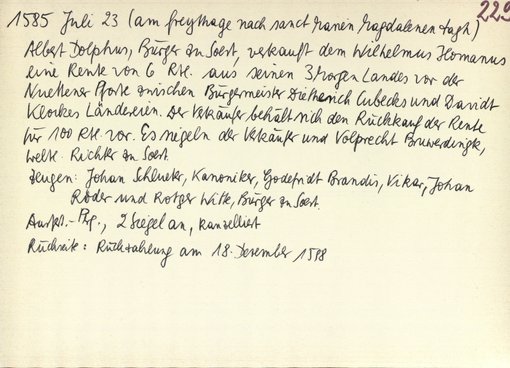 229
1585 Juli 23 (am freythage nach sanct Marien Magdalenen tagh)
Albert Dolphus, Bürger zu Soest, verkauft dem Wilhelmus Homanus
eine Rente von 6 Rtl. aus seinen 3 Morgen Landes vor der
Nuettener Pforte zwischen Bürgermeister Dietherich Cubecks und Davidt
Klockes Ländereien. Der Verkäufer behält sich den Rückkauf der Rente
für 100 Rtl. vor. Es siegeln der Verkäufer und Volprecht
weltl. Richter zu Soest.
Zeugen: Johan Schlueter, Kanoniker, Godefridt Brandis, Vikar, Johan
Roder und Rotger Witte, Bürger zu Soest.
Ausf.-Prg., 2 Siegel an, kanzelliert
Rückseite: Rückzahlung am 18. Dezember 1588